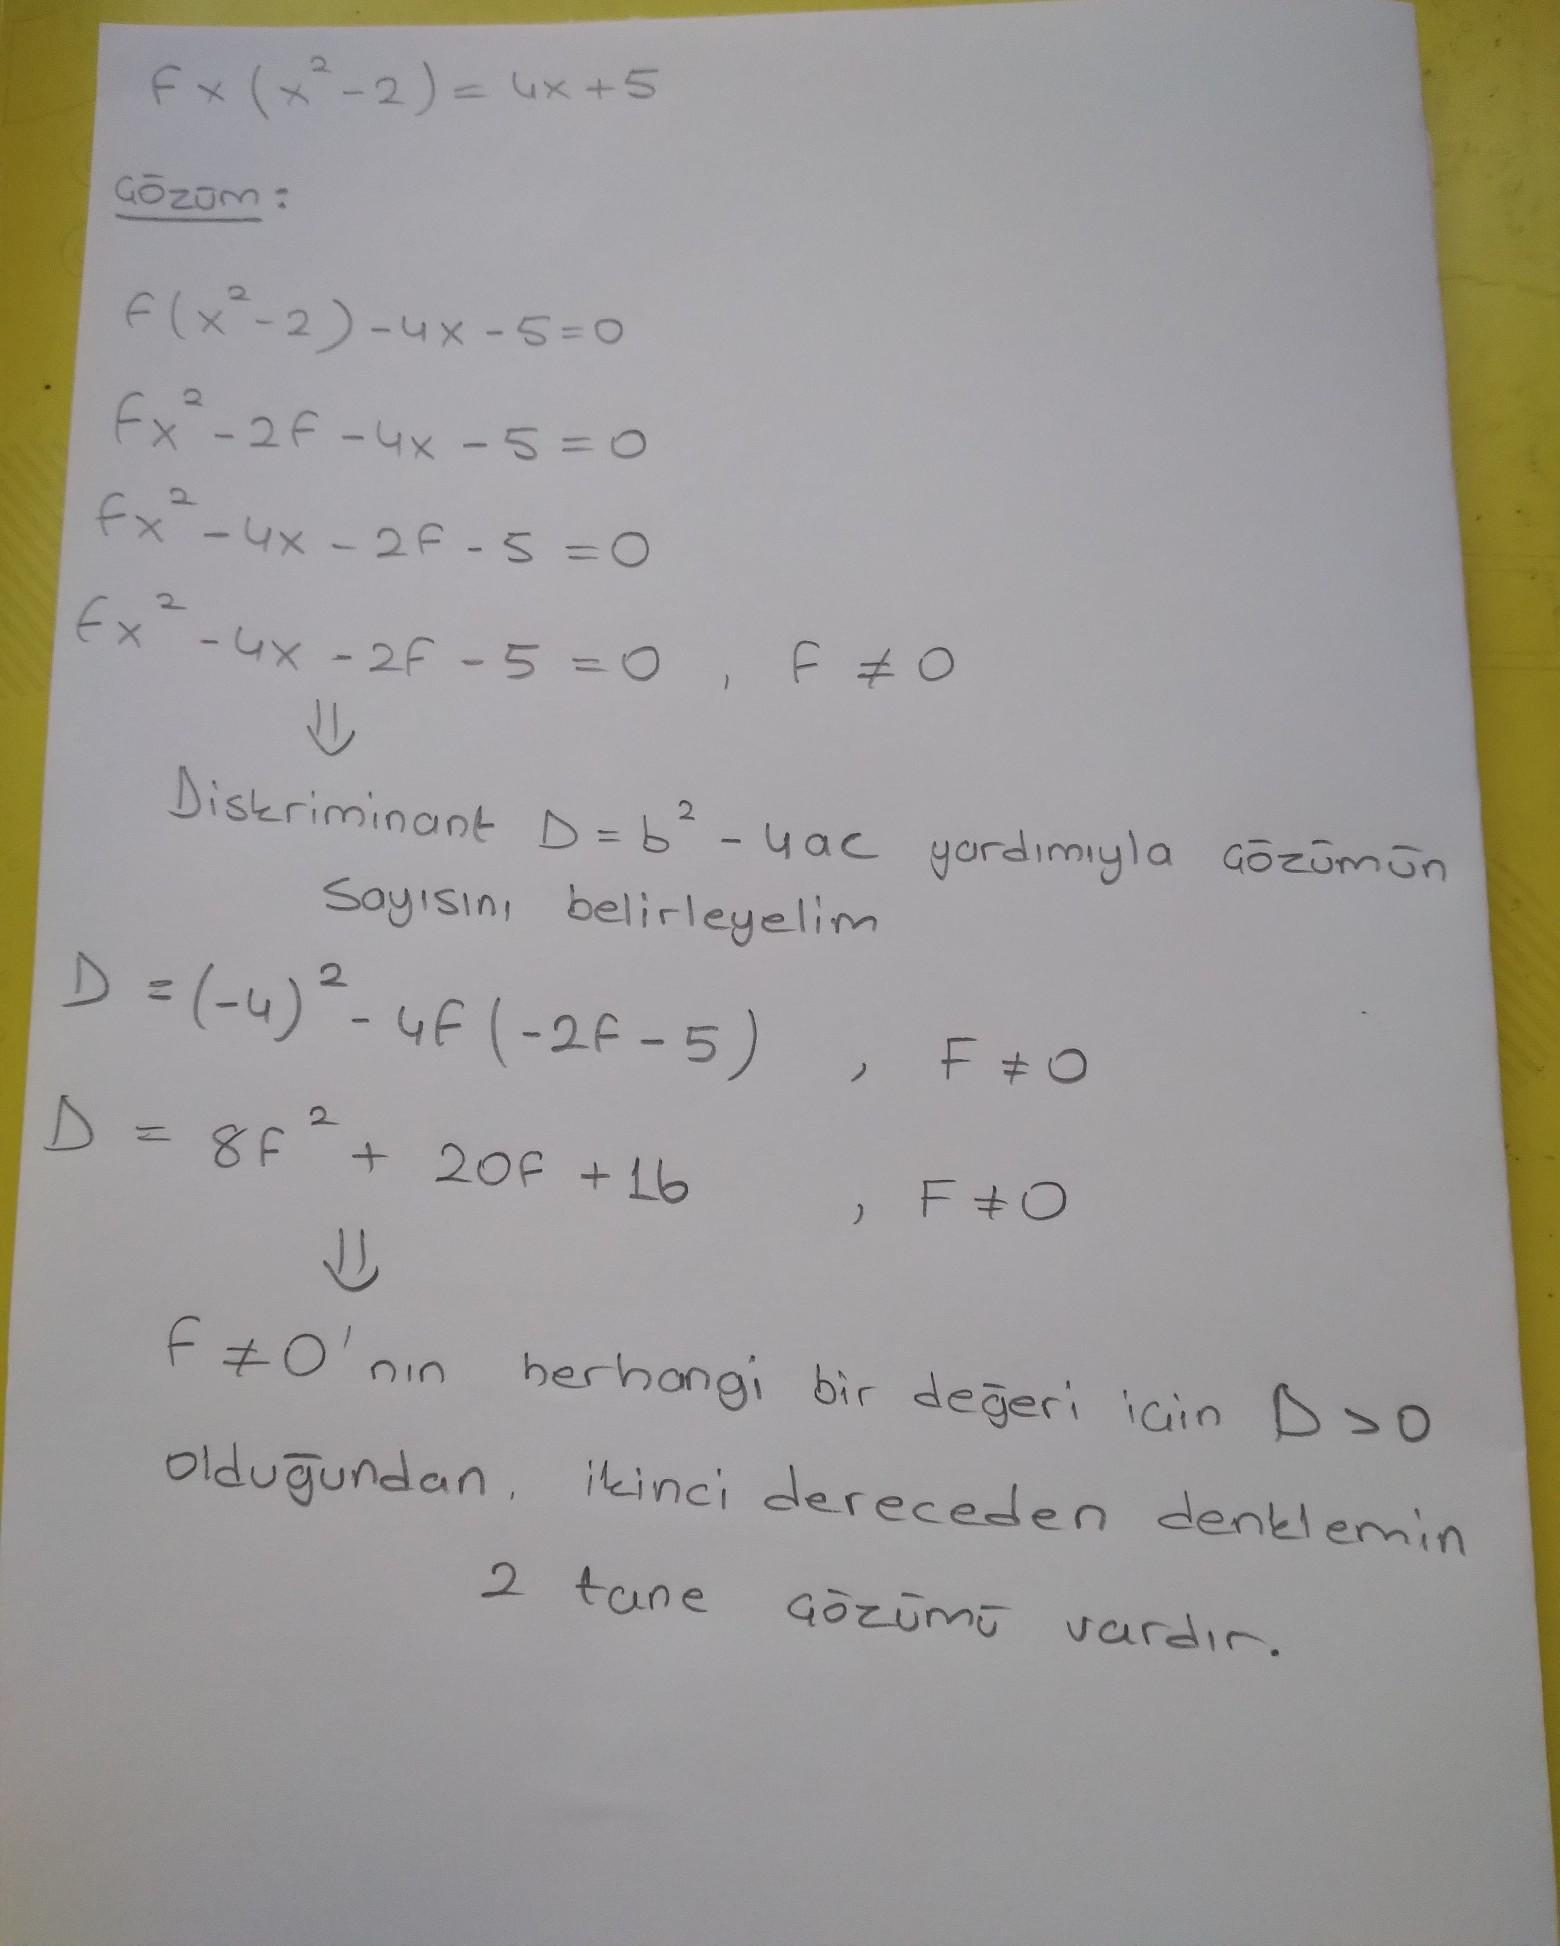 fx(x²-2)=4x+5
Çözüm:
f(x²-2)-4x-5=0
fx²-2f-4x-5=0
fx²-4x-2f-5=0
fx²-4x-2f-5=0, f≠0
⇓
Diskriminant D=b²-4ac yardımıyla çözümün
sayısını belirleyelim
D=(-4)²-4f(-2f-5), F≠0
D=8f²+20f+16, F≠0
⇓
f≠0'nın herhangi bir değeri için D>0
olduğundan, ikinci dereceden denklemin
2 tane çözümü vardır.